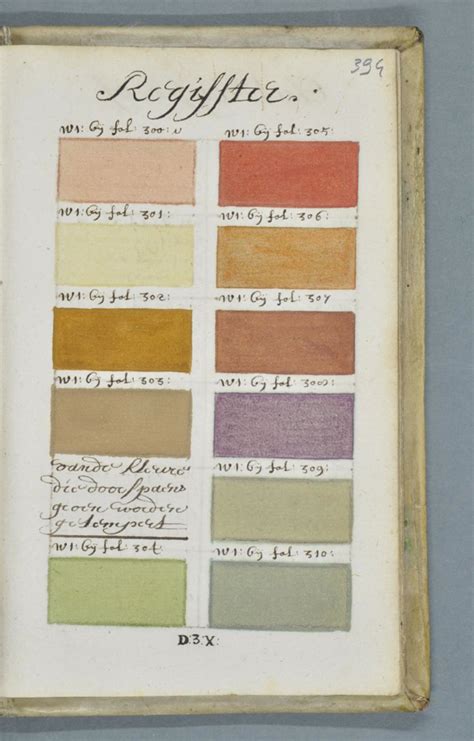 394
Regisster.
W1: bij fol: 300: W1: bij fol: 305:
W1: bij fol: 301: W1: bij fol: 306:
W1: bij fol: 302: W1: bij fol: 307
W1: bij fol: 303: W1: bij fol: 308:
vande kleure
die door spaens
groen worden
getempert
W1: bij fol: 309:
W1: bij fol: 304: W1: bij fol: 310:
D:3:X: